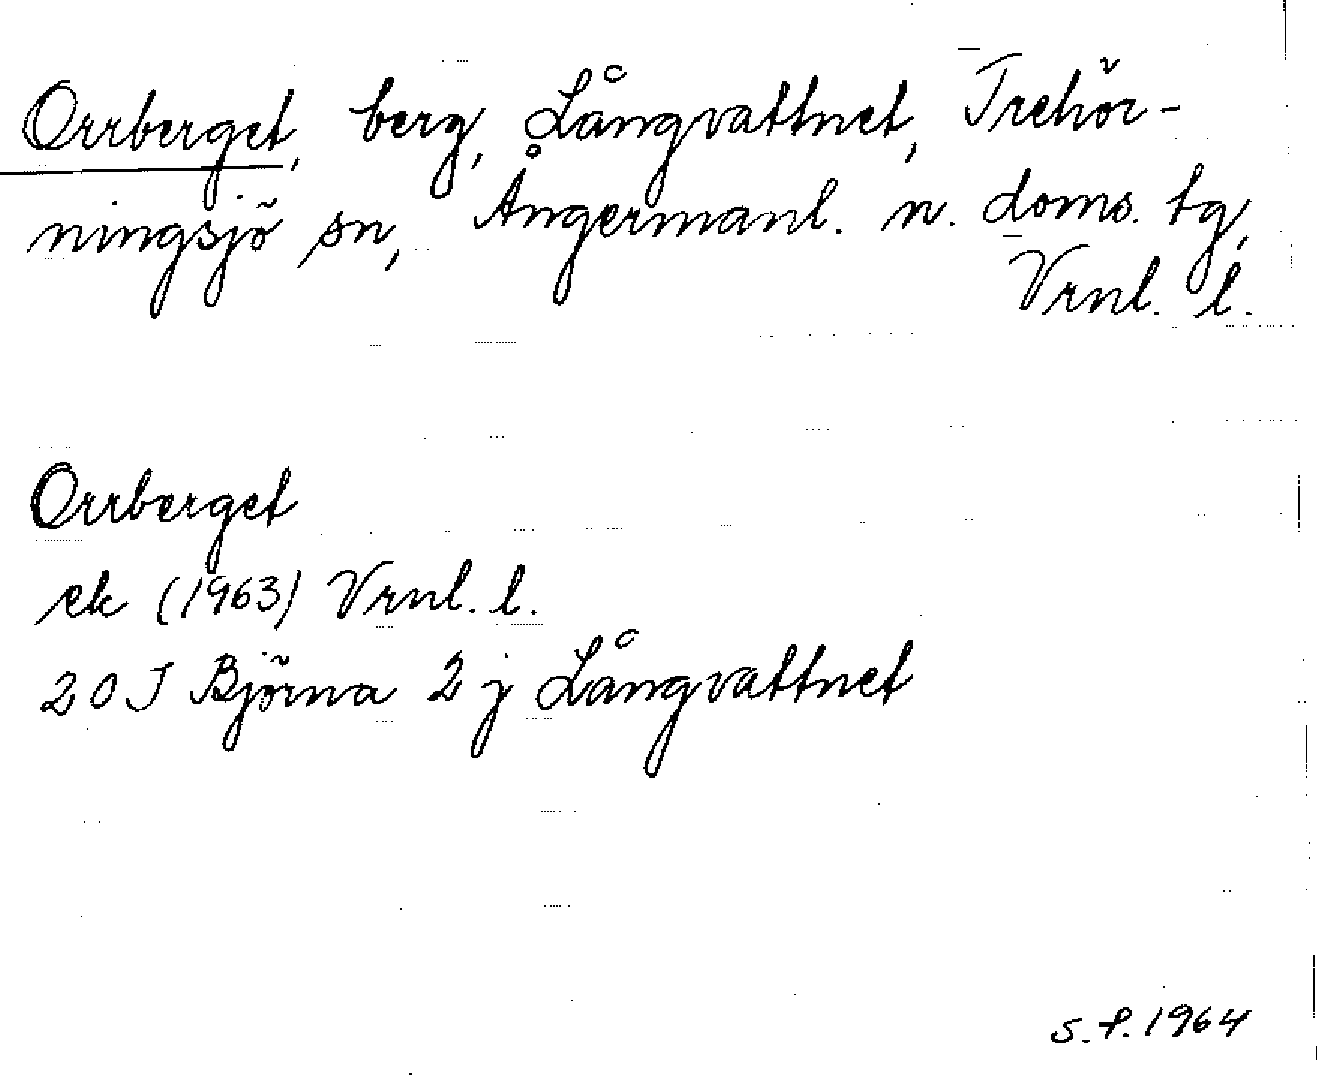 Orrberget, berg, Långvattnet, Trehör-
ningsjö sn, Ångermanl. n. doms. tg,
Vrnl. l.
Orrberget
ek (1963) Vrnl. l.
20 J Björna 2 j Långvattnet
S.P. 1964